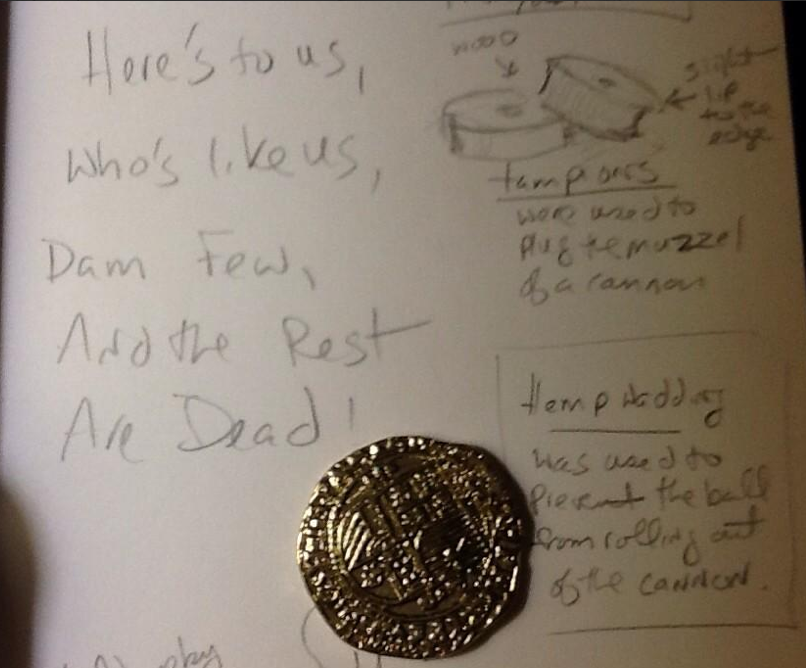 Here's to us,
Who's like us,
Dam Few,
And the Rest
Are Dead!
wood
slight
lip
to the
edge
tampions
were used to
plug the muzzel
of a cannon
Hemp wadding
was used to
prevent the ball
from rolling out
of the cannon.